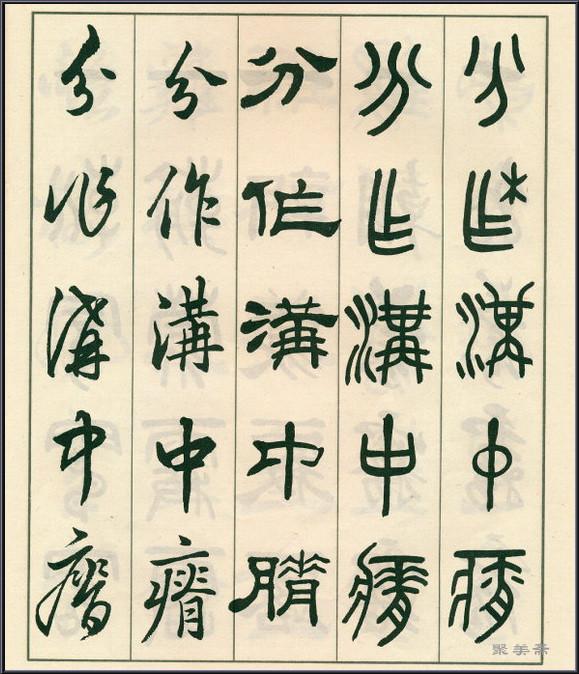 分作溝中瘠
分作溝中瘠
分作溝中瘠
分作溝中瘠
分作溝中瘠
聚美斋